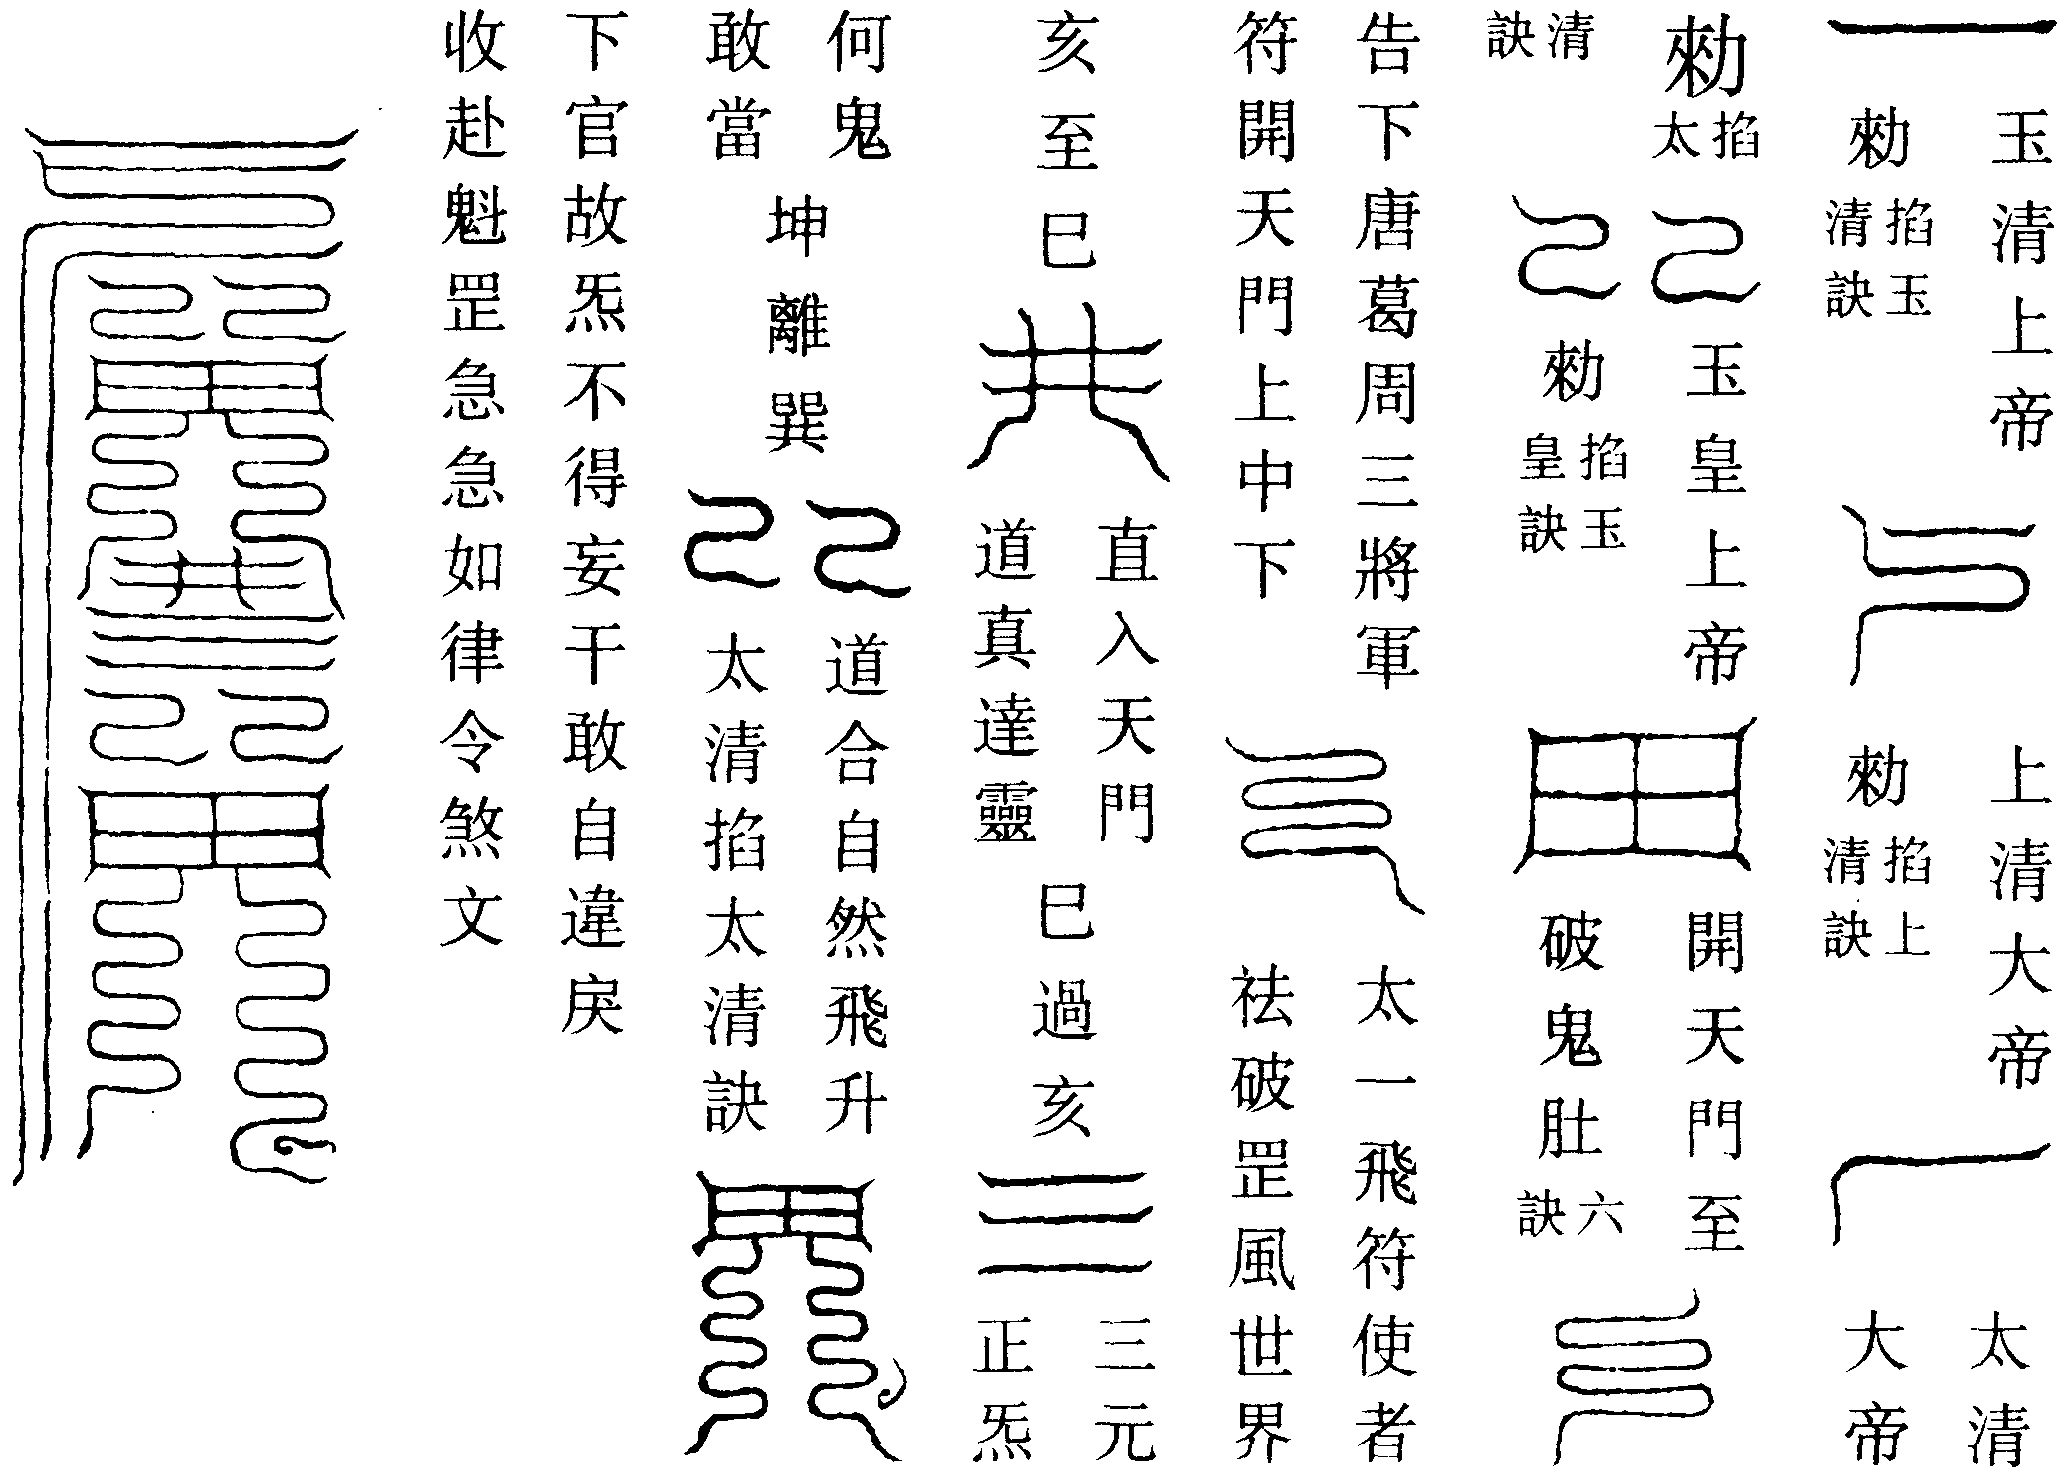 玉清上帝
勑掐玉清訣
上清大帝
勑掐上清訣
太清
大帝
勑掐太清訣
玉皇上帝
勑掐玉皇訣
開天門至
破鬼肚六訣
告下唐葛周三將軍
符開天門上中下
太一飛符使者
祛破罡風世界
亥至巳
直入天門
道真達靈
巳過亥
三元
正炁
何鬼
敢當
坤離巽
道合自然飛升
太清掐太清訣
下官故炁不得妄干敢自違戾
收赴魁罡急急如律令煞文